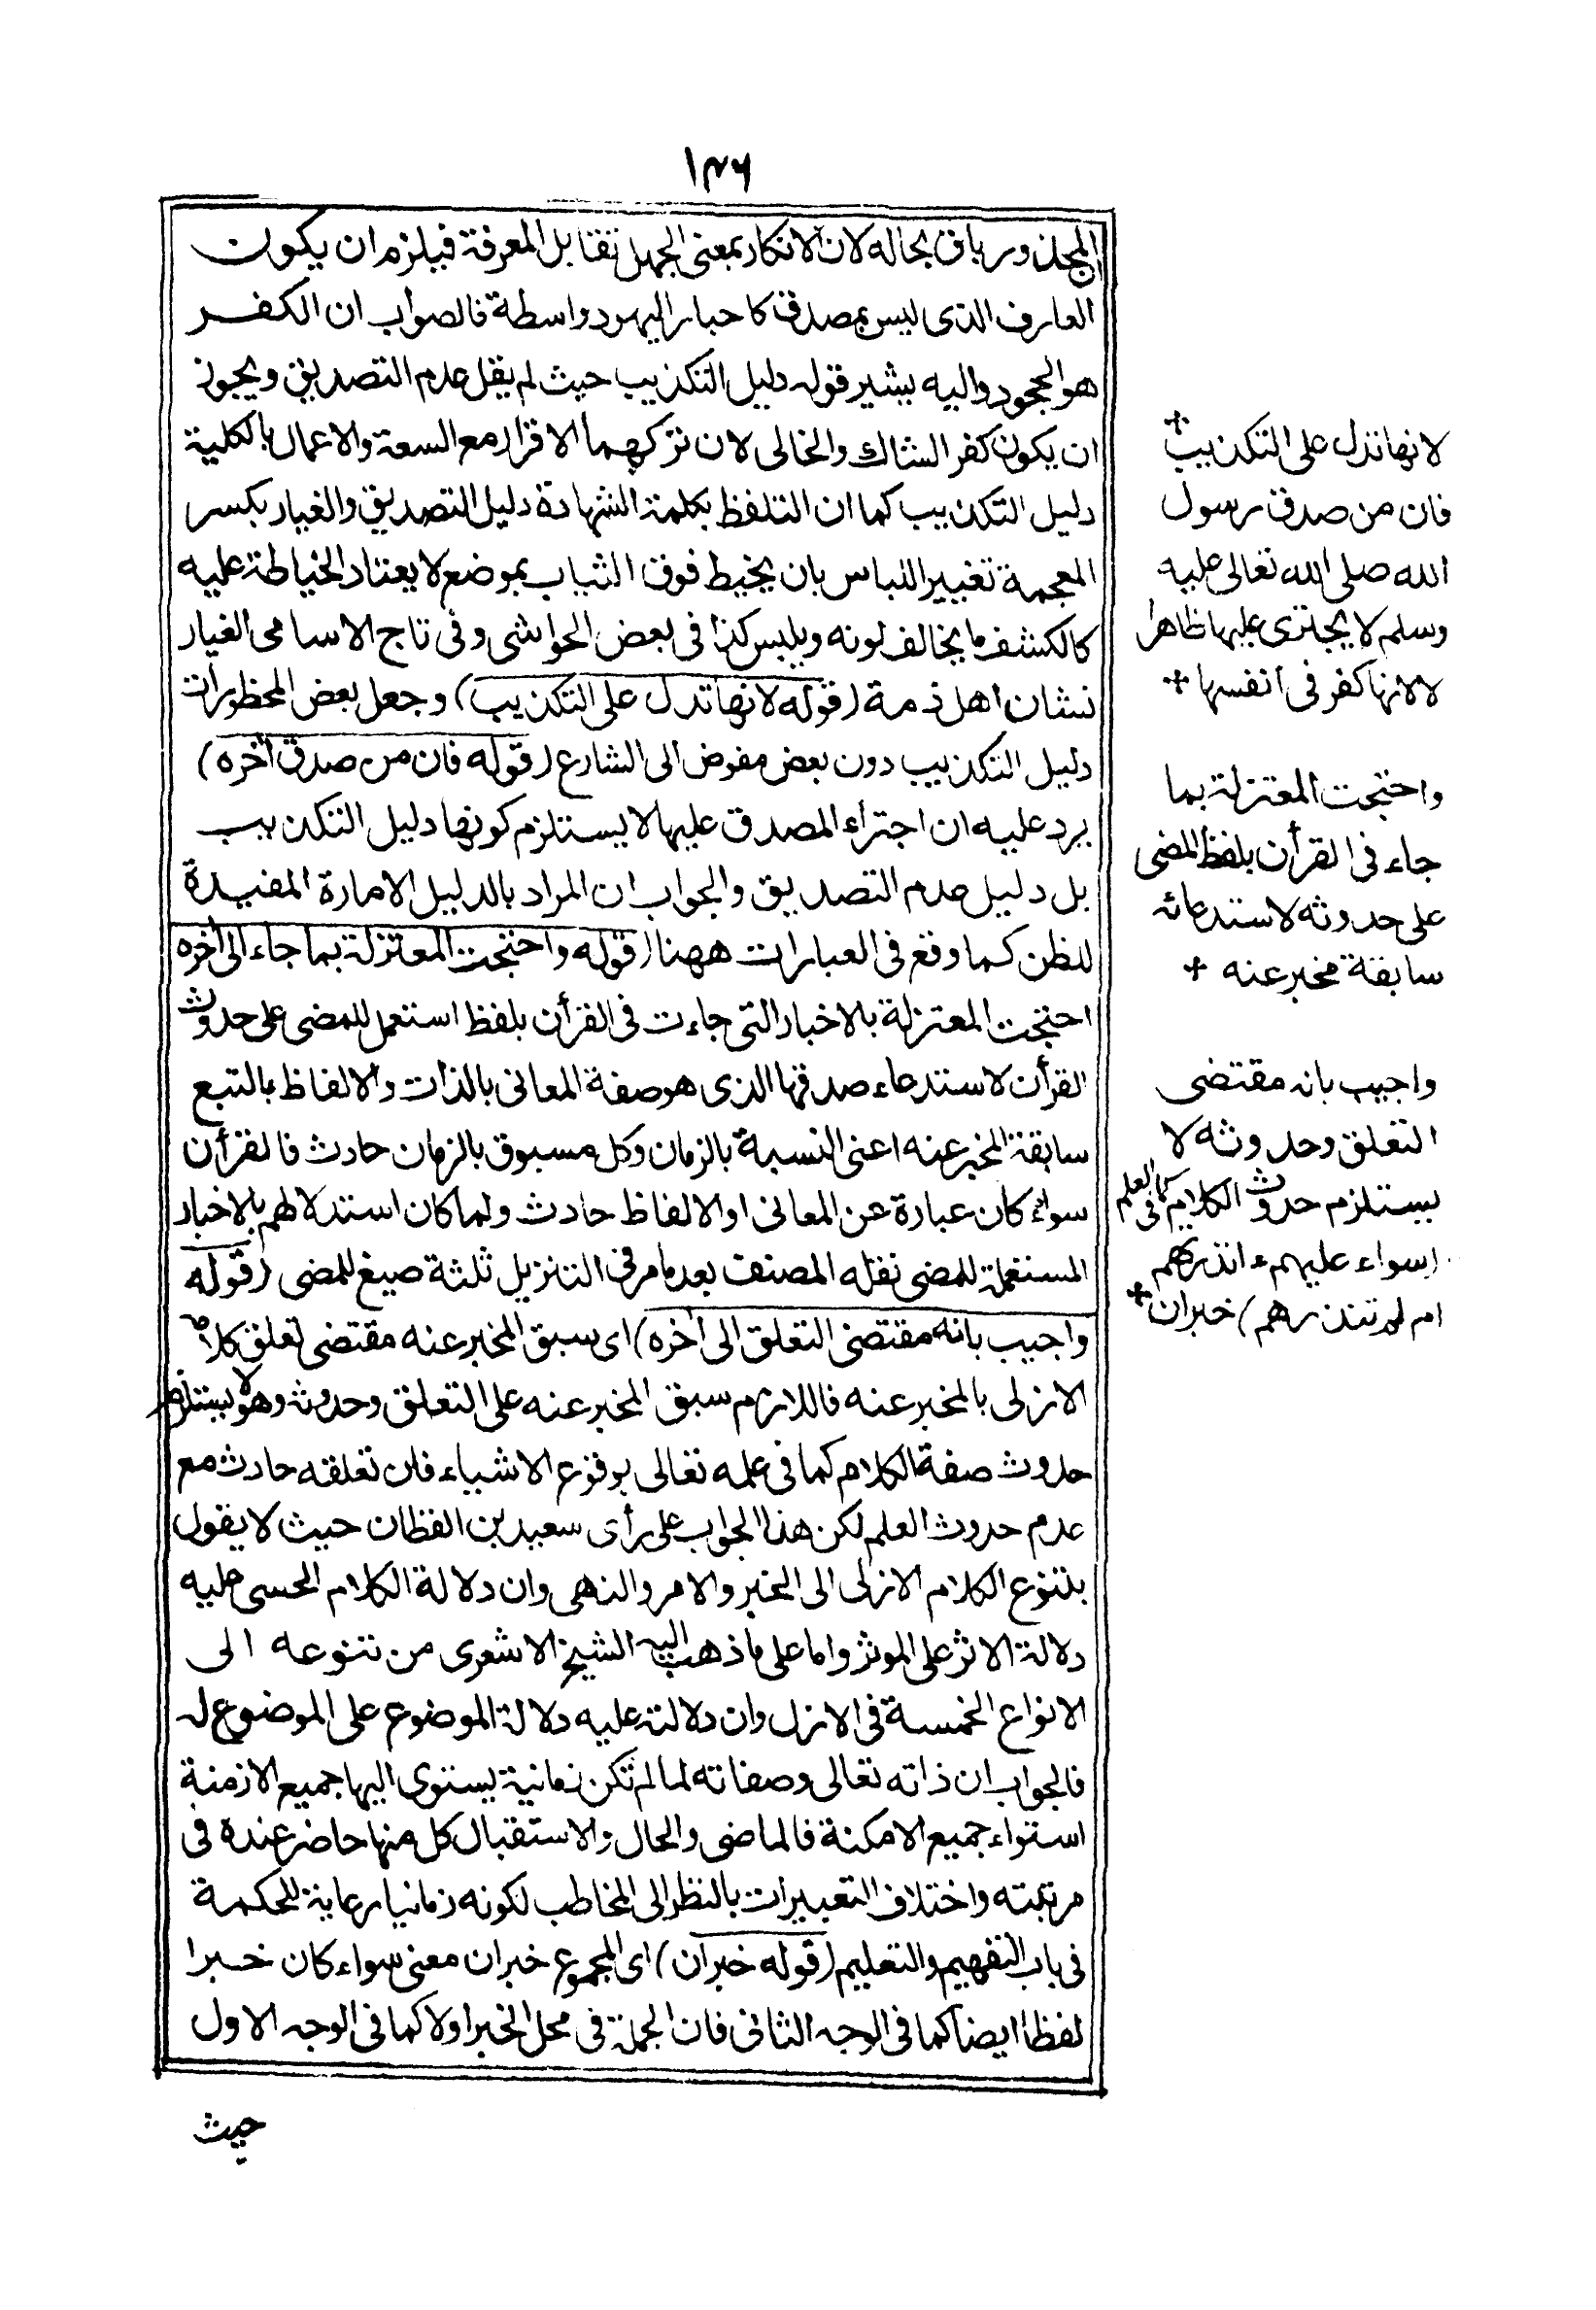 ١٣٦
المحذور باق بحاله لان الانكار بمعنى الجهل تقابل المعرفة فيلزم ان يكون
العارف الذى ليس بمصدق كاحبار اليهود واسطة فالصواب ان الكفر
هو الجحود واليه يشير قوله دليل التكذيب حيث لم يقل عدم التصديق ويجوز
ان يكون كفر الشاك والخالى لان تركهما الاقرار مع السعة والاعمال بالكلية
دليل التكذيب كما ان التلفظ بكلمة الشهادة دليل التصديق والغيار بكسر
المعجمة تغيير اللباس بان يخيط فوق الثياب بموضع لا يعتاد الخياطة عليه
كالكشف ما يخالف لونه ويلبس كذا فى بعض الحواشى وفى تاج الاسامى الغيار
نشان اهل ذمة (قوله لانها تدل على التكذيب) وجعل بعض المحظورات
دليل التكذيب دون بعض مفوض الى الشارع (قوله فان من صدق آخره)
يرد عليه ان اجتراء المصدق عليها لا يستلزم كونها دليل التكذيب
بل دليل عدم التصديق والجواب ان المراد بالدليل الامارة المفيدة
للظن كما وقع فى العبارات ههنا (قوله واحتجت المعتزلة بما جاء الى آخره
احتجت المعتزلة بالاخبار التى جاءت فى القرأن بلفظ استعمل للمضى على حدوث
القرأن لاستدعاء صدقها الذى هو صفة المعانى بالذات والالفاظ بالتبع
سابقة المخبر عنه اعنى النسبة بالزمان وكل مسبوق بالزمان حادث فالقرأن
سواء كان عبارة عن المعانى او الالفاظ حادث ولما كان استدلالهم بالاخبار
المستعملة للمضى نقله المصنف بعد ما مر فى التنزيل ثلثة صيغ للمضى (قوله
واجيب بانه مقتضى التعلق الى آخره) اى سبق المخبر عنه مقتضى تعلق كلامه
الازلى بالمخبر عنه فاللازم سبق المخبر عنه على التعلق وحدوثه وهو لا يستلزم
حدوث صفة الكلام كما فى علمه تعالى بوقوع الاشياء فان تعلقه حادث مع
عدم حدوث العلم لكن هذا الجواب على رأى سعيد بن القظان حيث لا يقول
بتنوع الكلام الازلى الى الخبر والامر والنهى وان دلالة الكلام الحسى عليه
دلالة الاثر على الموثر واما على ما ذهب اليه الشيخ الاشعرى من تنوعه الى
الانواع الخمسة فى الازل وان دلالته عليه دلالة الموضوع على الموضوع له
فالجواب ان ذاته تعالى وصفاته لما لم تكن زمانية يستوى اليها جميع الازمنة
استواء جميع الامكنة فالماضى والحال والاستقبال كل منها حاضر عنده فى
مرتبته واختلاف التعبيرات بالنظر الى المخاطب لكونه زمانيا رعاية للحكمة
فى باب التفهيم والتعليم (قوله خبران) اى المجموع خبران معنى سواء كان خبرا
لفظا ايضا كما فى الوجه الثانى فان الجملة فى محل الخبر اولا كما فى الوجه الاول
حيث
لانها تدل على التكذيب
فان من صدق رسول
الله صلى الله تعالى عليه
وسلم لا يجترى عليها ظاهرا
لا لانها كفر فى انفسها
واحتجت المعتزلة بما
جاء فى القرأن بلفظ المضى
على حدوثه لاستدعائه
سابقة مخبر عنه
واجيب بانه مقتضى
التعلق وحدوثه لا
يستلزم حدوث الكلام كما فى العلم
(سواء عليهم ءانذرتهم
ام لم تنذرهم) خبران